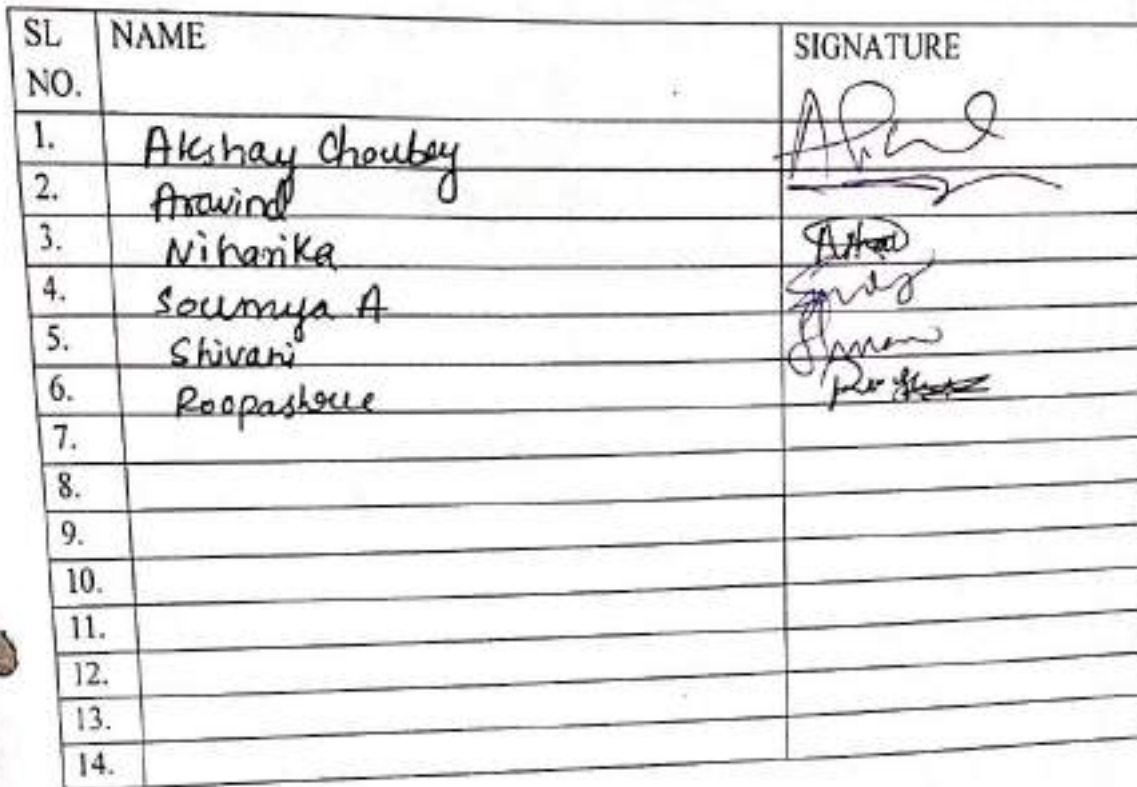 SL NO. NAME SIGNATURE
1. Akshay Choubey
2. Aravind
3. Niharika
4. Soumya A
5. Shivani
6. Roopashree
7.
8.
9.
10.
11.
12.
13.
14.